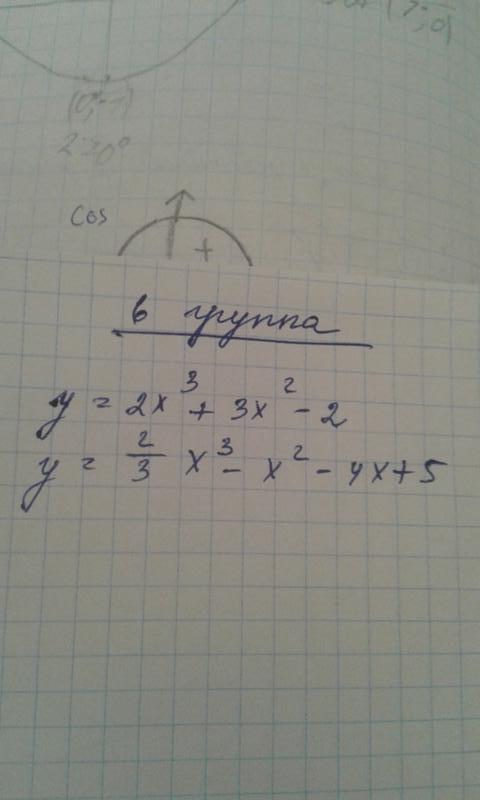 (0;-1)
Cos
+
6 группа
y = 2x³ + 3x² - 2
y = 2/3 x³ - x² - 4x + 5